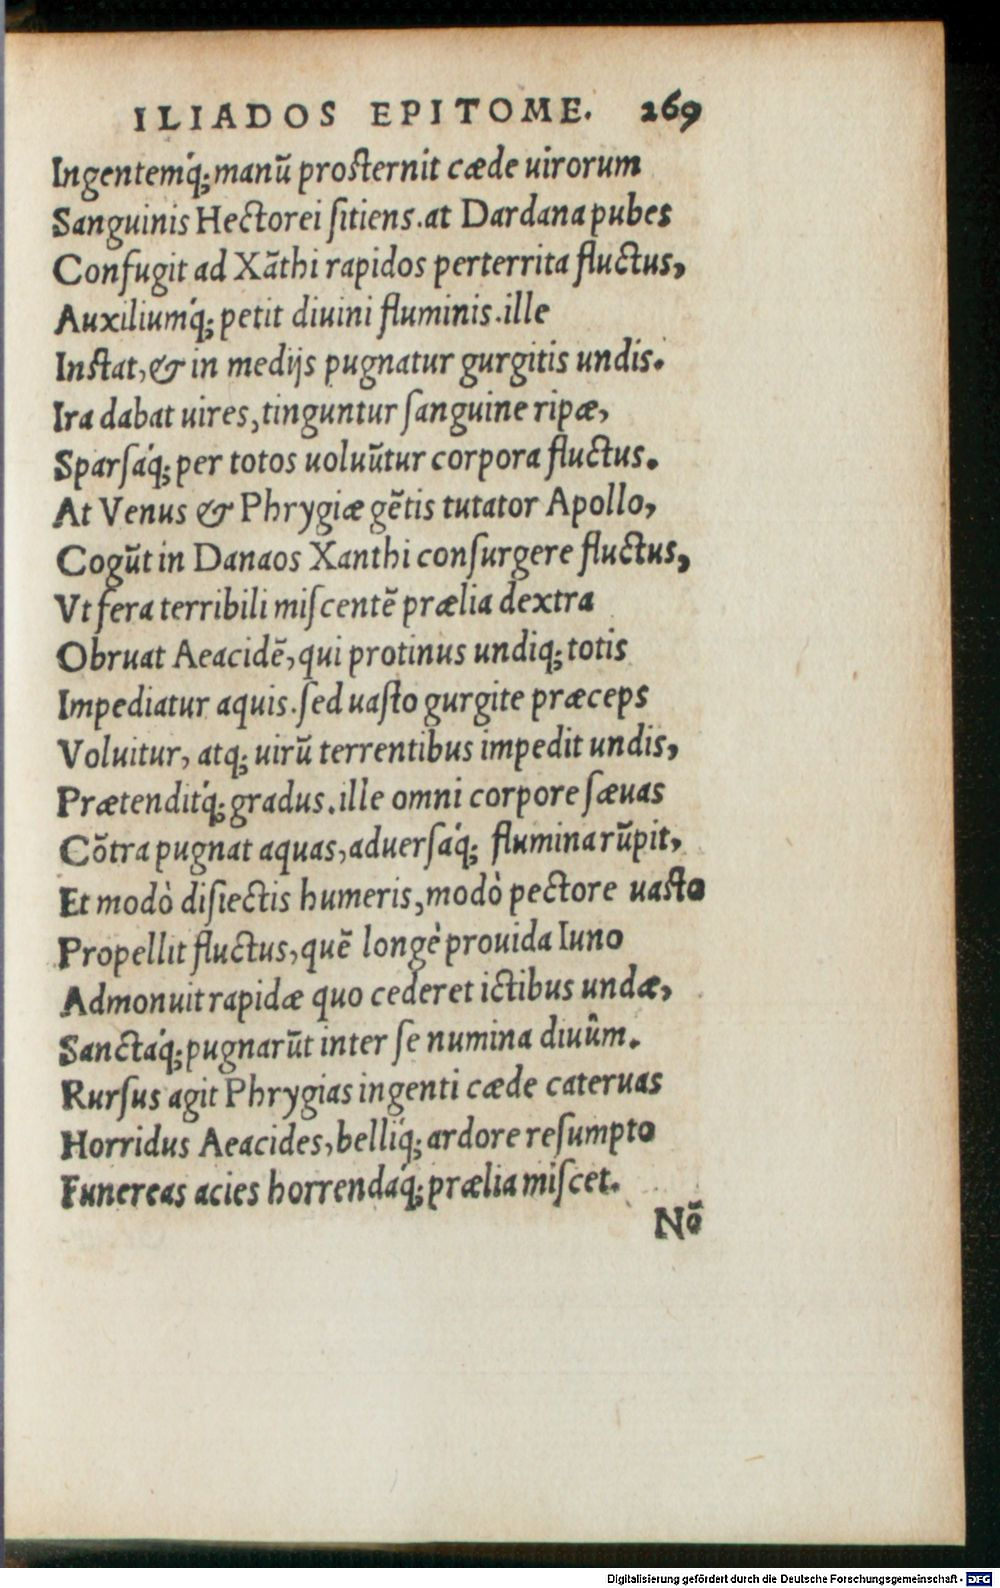 ILIADOS EPITOME. 269
Ingentemq́;manũ prosternit cæde uirorum
Sanguinis Hectorei ſitiens.at Dardana pubes
Confugit ad Xãthi rapidos perterrita fluctus,
Auxiliumq́; petit diuini fluminis.ille
Instat,& in medijs pugnatur gurgitis undis.
Ira dabat uires,tinguntur ſanguine ripæ,
Sparſaq́; per totos uoluũtur corpora fluctus.
At Venus & Phrygiæ gẽtis tutator Apollo,
Cogũt in Danaos Xanthi conſurgere fluctus,
Vt fera terribili miſcentẽ prælia dextra
Obruat Aeacidẽ,qui protinus undiq; totis
Impediatur aquis.ſed uaſto gurgite præceps
Voluitur, atq; uirũ terrentibus impedit undis,
Prætenditq́; gradus.ille omni corpore ſæuas
Cõtra pugnat aquas,aduerſaq́; fluminarũpit,
Et modò diſiectis humeris,modò pectore uasto
Propellit fluctus,quẽ longè prouida Iuno
Admonuit rapidæ quo cederet ictibus undæ,
Sanctaq́;pugnarũt inter ſe numina diuûm.
Rurſus agit Phrygias ingenti cæde cateruas
Horridus Aeacides,belliq́; ardore reſumpto
Funereas acies horrendaq́; prælia miſcet.
Nõ
Digitalisierung gefördert durch die Deutsche Forschungsgemeinschaft - DFG